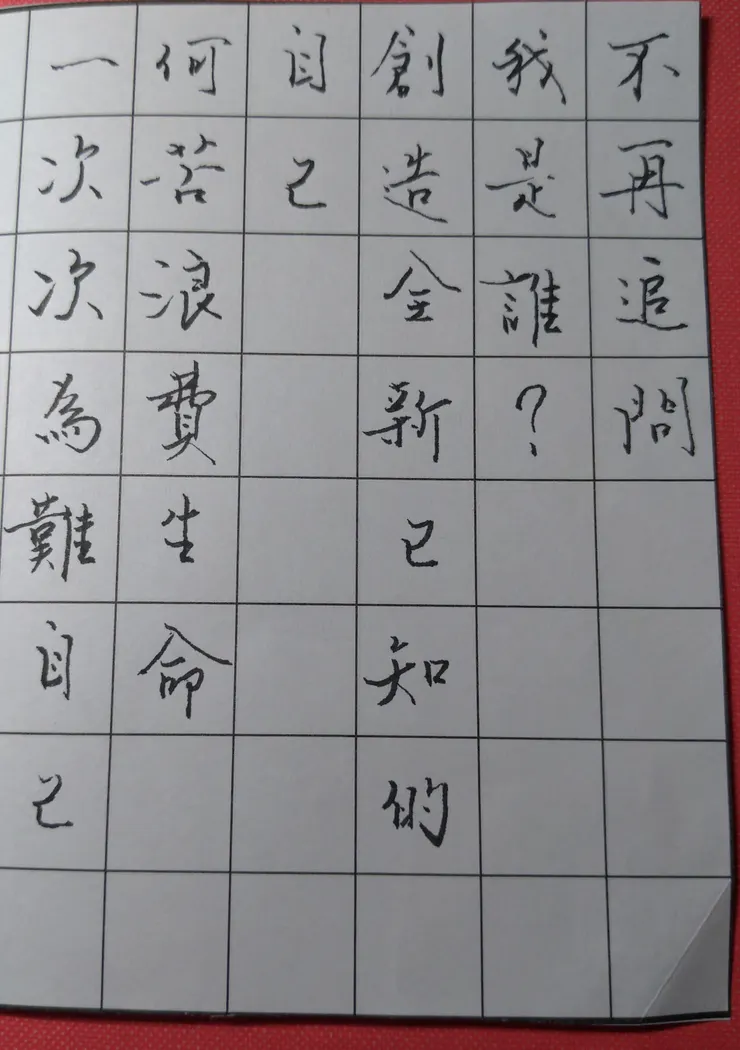 不再追問
我是誰？
創造全新已知的
自己
何苦浪費生命
一次次為難自己